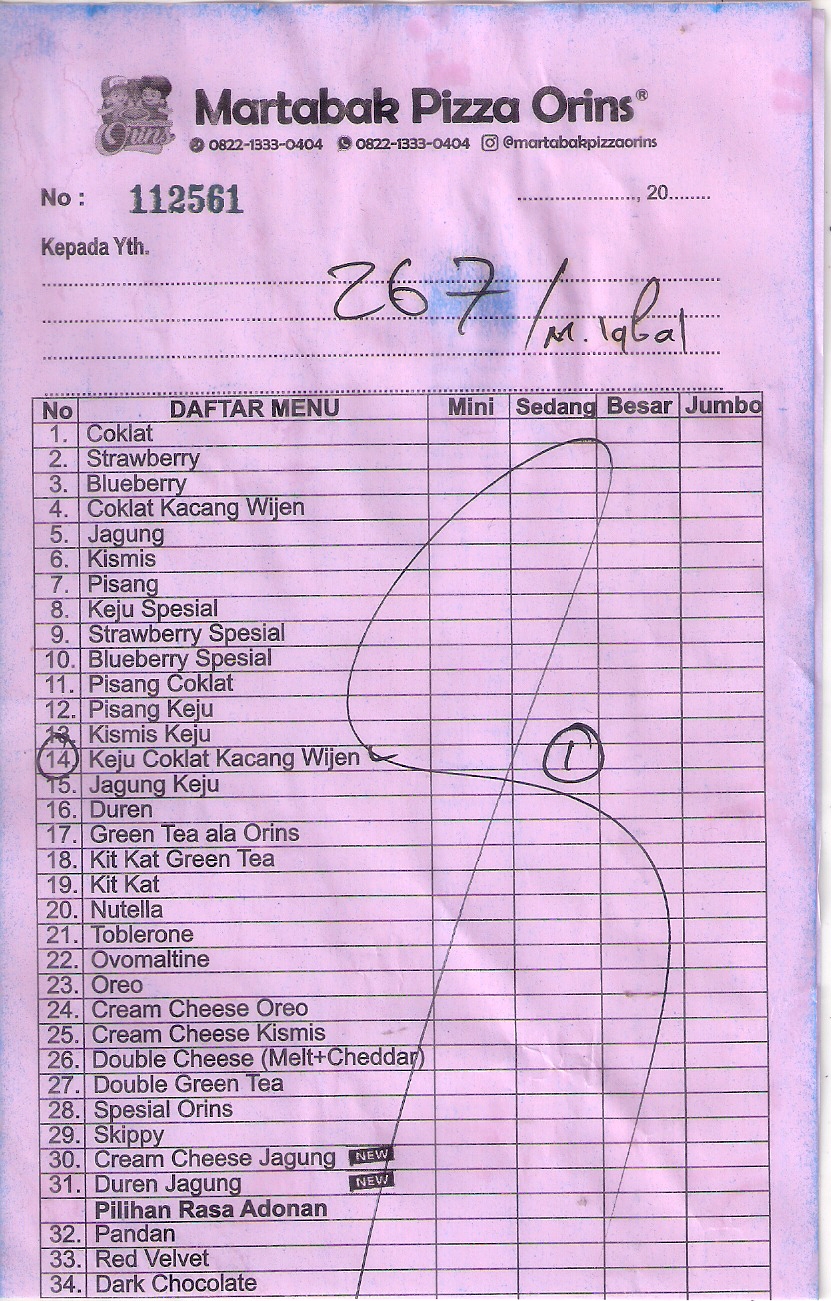 Orins Martabak Pizza Orins®
0822-1333-0404 0822-1333-0404 @martabakpizzaorins
No : 112561 ...................., 20........
Kepada Yth.
267 / M. Iqbal
No DAFTAR MENU Mini Sedang Besar Jumbo
1. Coklat
2. Strawberry
3. Blueberry
4. Coklat Kacang Wijen
5. Jagung
6. Kismis
7. Pisang
8. Keju Spesial
9. Strawberry Spesial
10. Blueberry Spesial
11. Pisang Coklat
12. Pisang Keju
13. Kismis Keju
14. Keju Coklat Kacang Wijen 1
15. Jagung Keju
16. Duren
17. Green Tea ala Orins
18. Kit Kat Green Tea
19. Kit Kat
20. Nutella
21. Toblerone
22. Ovomaltine
23. Oreo
24. Cream Cheese Oreo
25. Cream Cheese Kismis
26. Double Cheese (Melt+Cheddar)
27. Double Green Tea
28. Spesial Orins
29. Skippy
30. Cream Cheese Jagung NEW
31. Duren Jagung NEW
Pilihan Rasa Adonan
32. Pandan
33. Red Velvet
34. Dark Chocolate